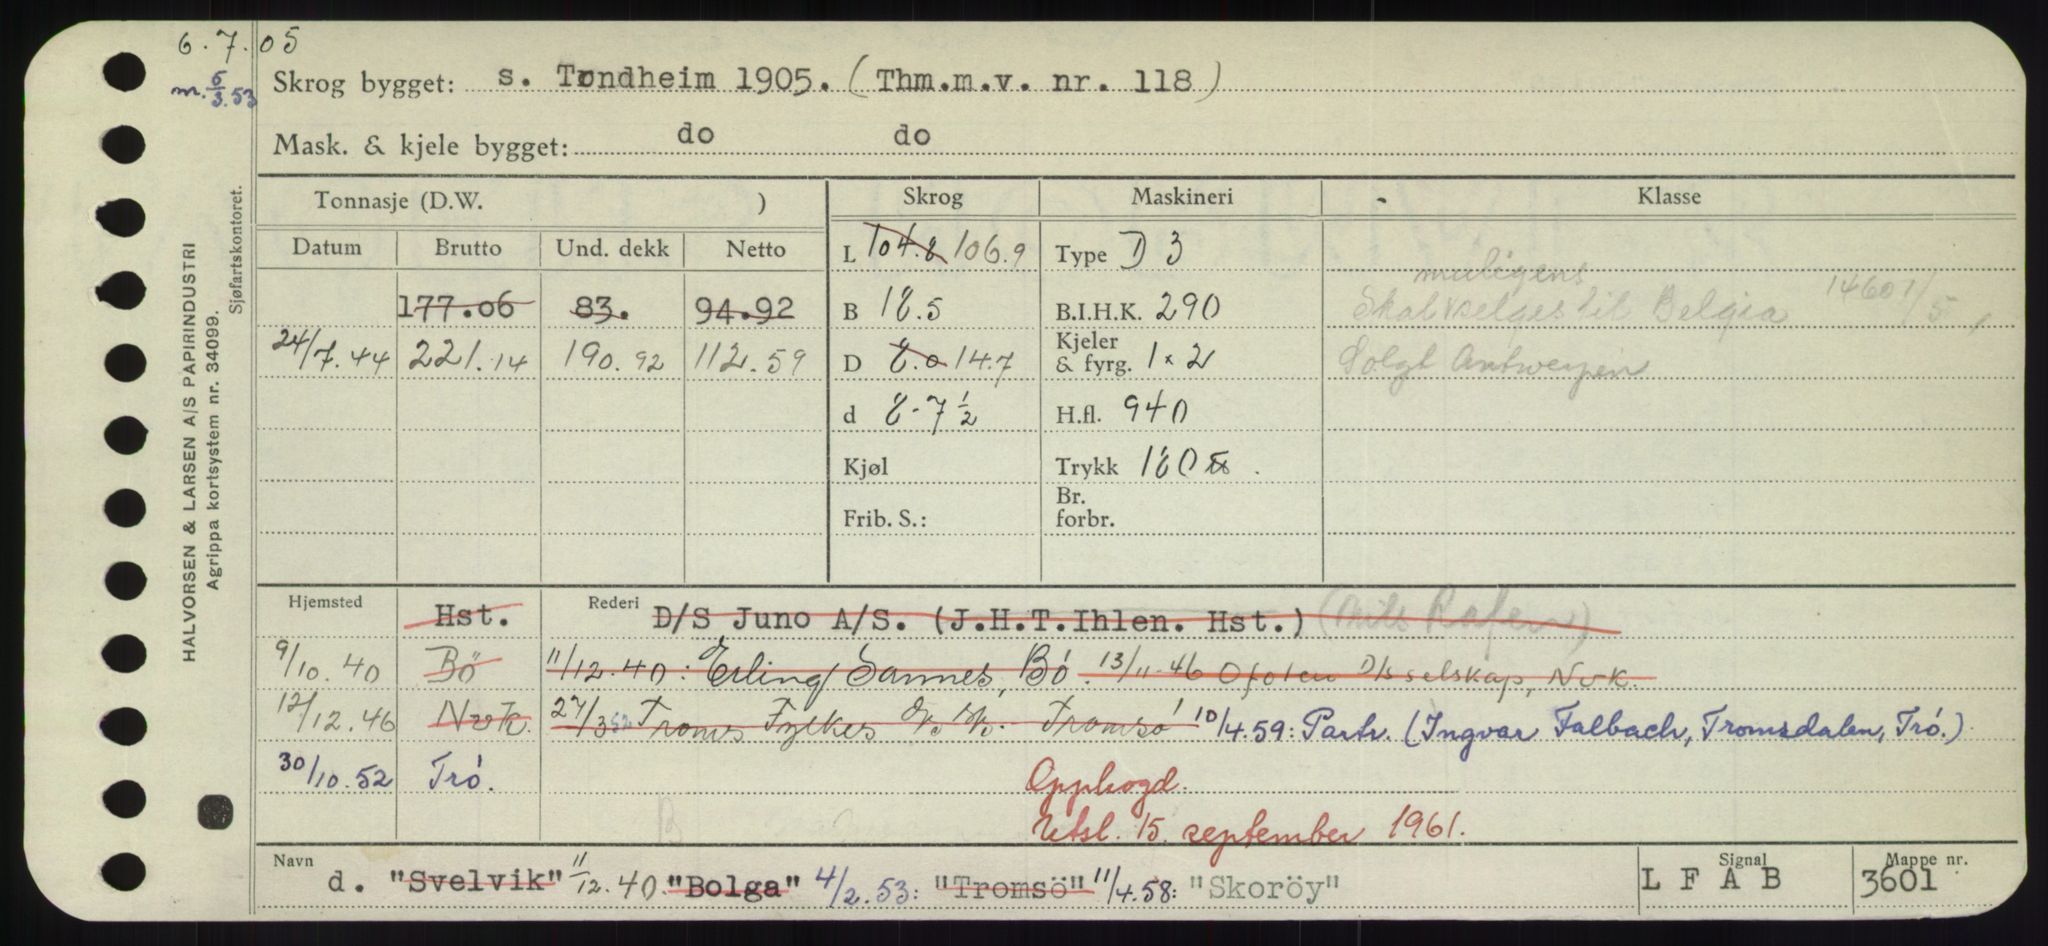 6.7.05
m. 6/3.53
Skrog bygget: s. Trondheim 1905. (Thm.m.v. nr. 118)
Mask. & kjele bygget: do do
HALVORSEN & LARSEN A/S PAPIRINDUSTRI
Agrippa kortsystem nr. 34099.
Sjøfartskontoret.
Tonnasje (D.W. ) Skrog Maskineri Klasse
Datum Brutto Und. dekk Netto
L 104.8 106.9 Type D 3
muligens
177.06 83. 94.92 B 18.5 B.I.H.K. 290 Skal selges til Belgia
24/7.44 221.14 190.92 112.59 D 8.0 14.7 Kjeler & fyrg. 1 x 2 Solgt Antwerpen
d 8-7 1/2 H.fl. 940
Kjøl Trykk 180 lbs.
Frib. S.: Br. forbr.
Hjemsted Hst. Rederi D/S Juno A/S. (J.H.T.Ihlen. Hst.)
9/10.40 Bö 11/12.40: Erling Sannes, Bö. 13/11.46 Ofoten D/s selskap, Nvk.
12/12.46 Nvk. 27/3 52 Troms Fylkes D/S A/S. Tromsö 10/4.59: Partr. (Ingvar Falbach, Tromsdalen, Trö.)
30/10.52 Trö.
Opphogd.
Utsl. 15. september 1961.
Navn d. "Svelvik" 11/12.40 "Bolga" 4/2.53: "Tromsö" 11/4.58: "Skoröy" Signal L F A B Mappe nr. 3601